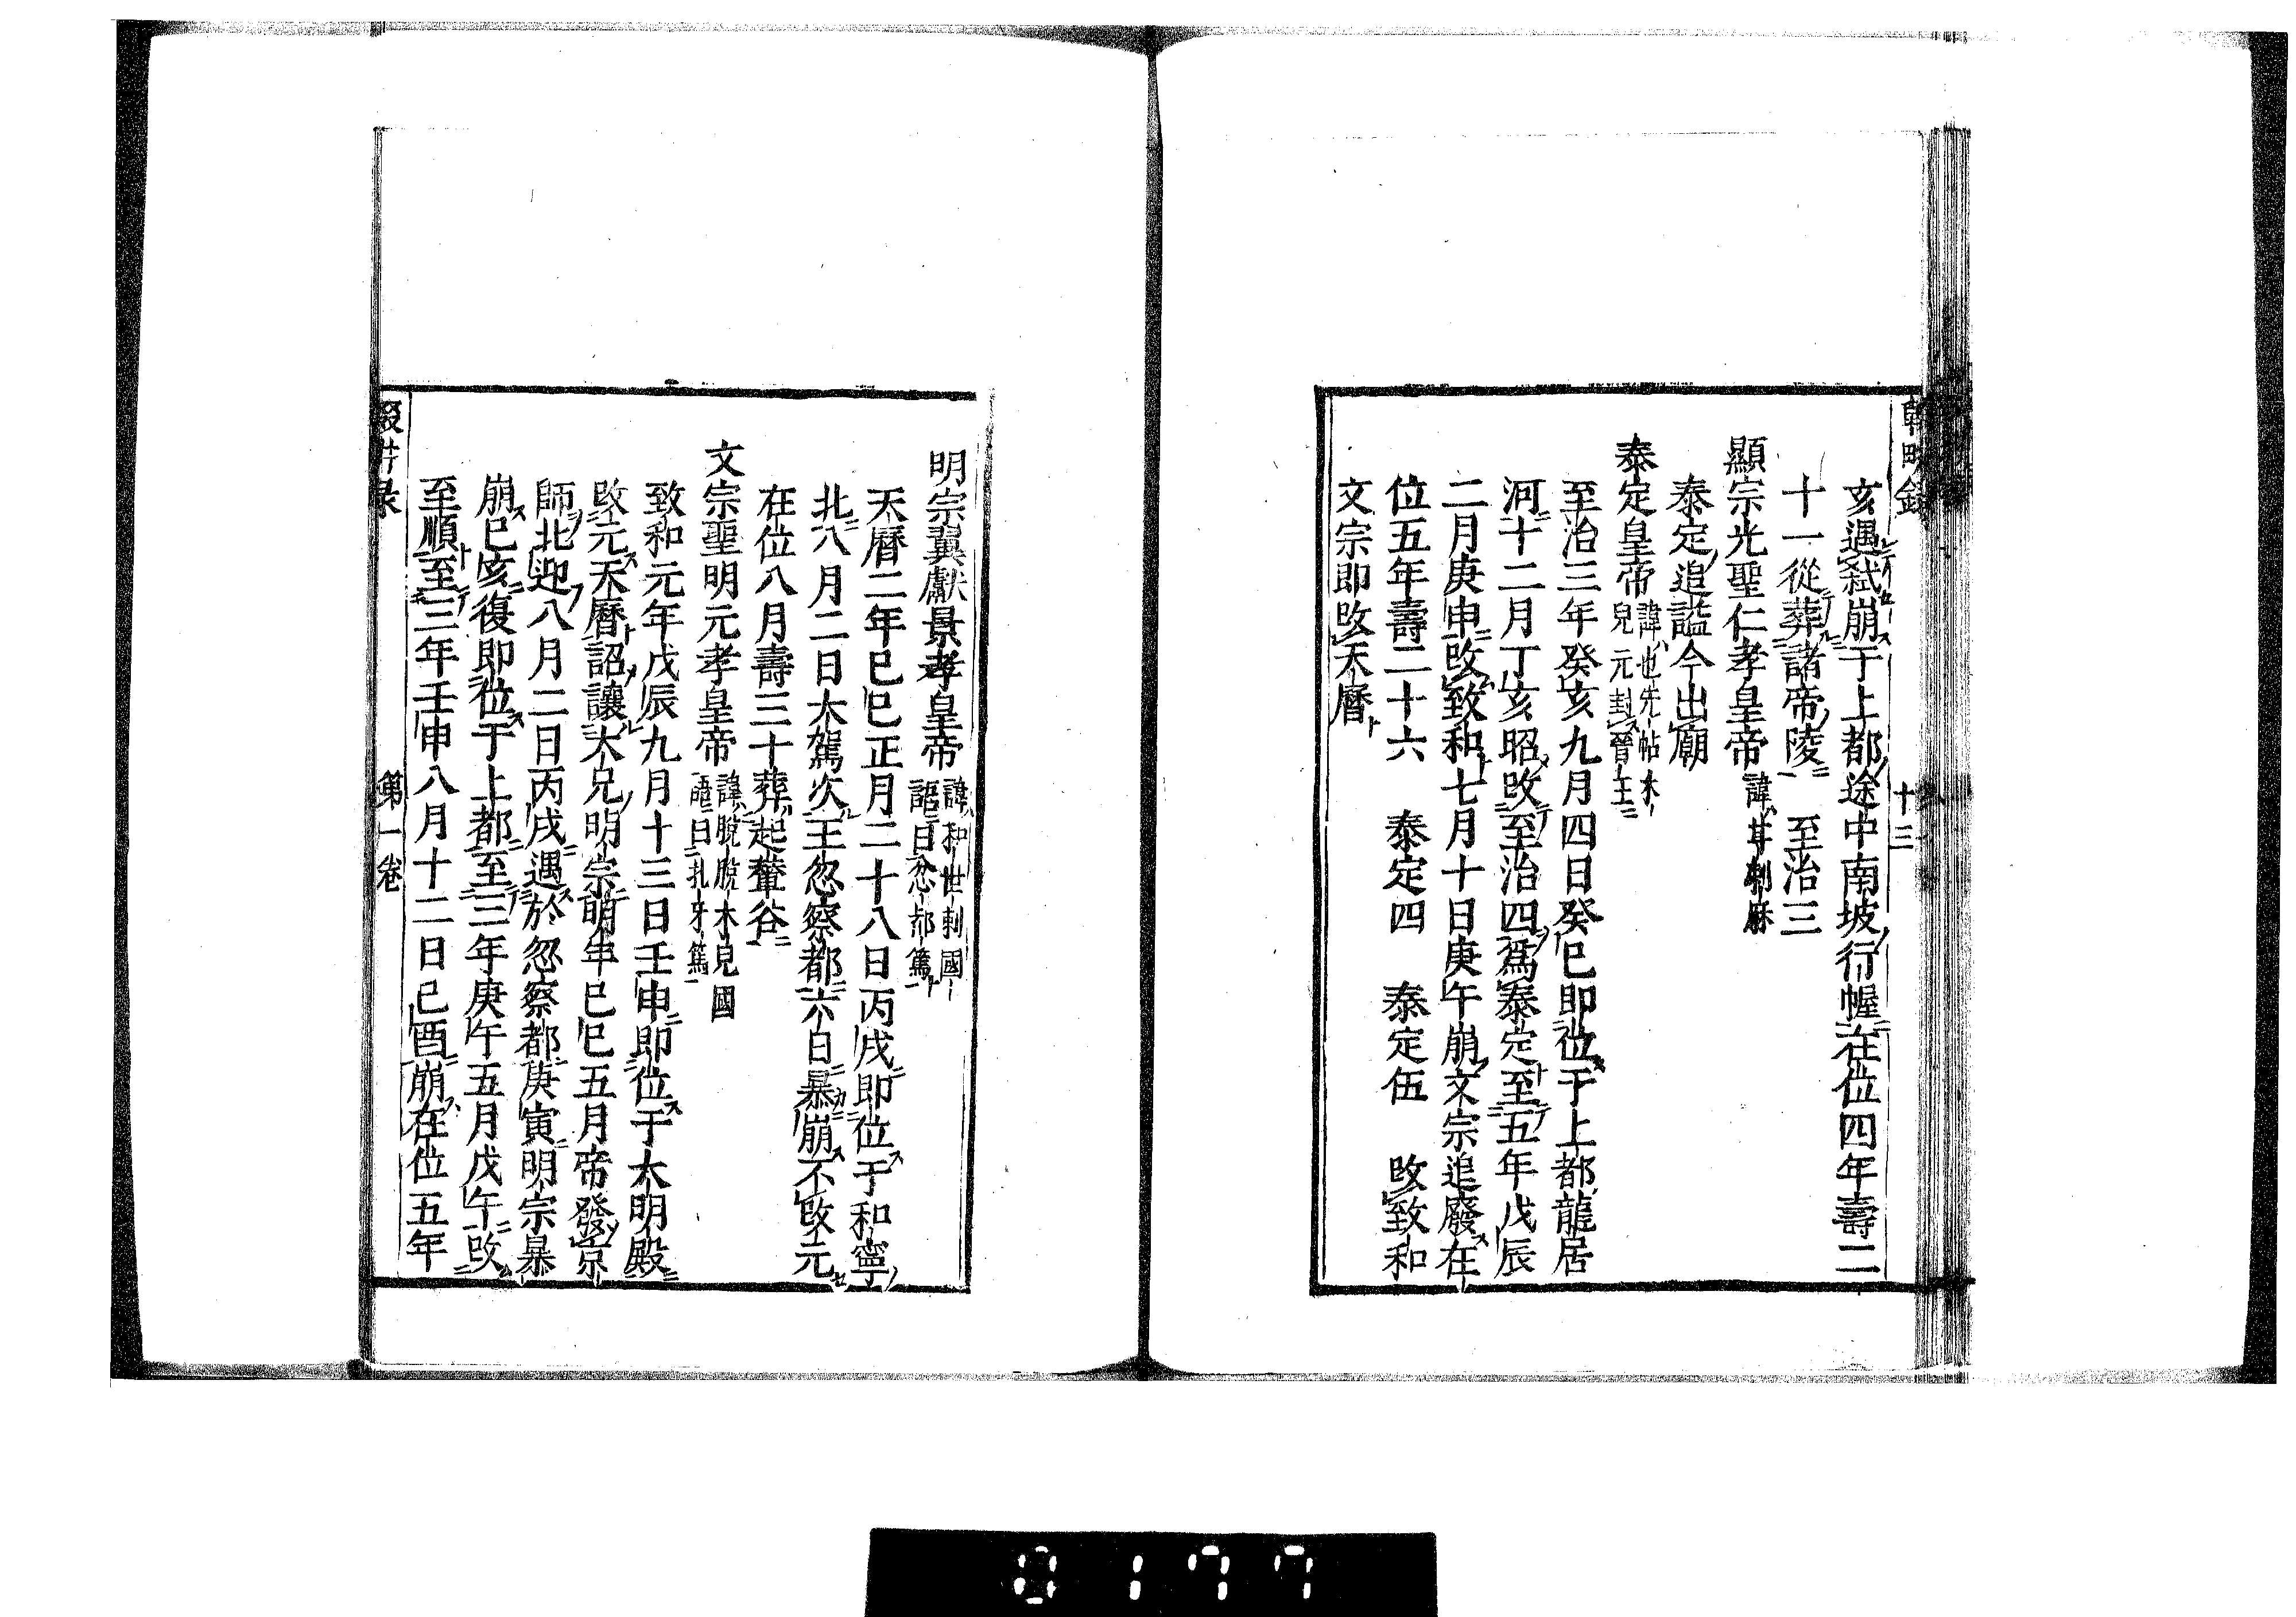 亥遇弑崩于上都途中南坡行幄在位四年壽二
十一從葬諸帝陵　至治三
顯宗光聖仁孝皇帝諱甘剌麻
泰定追謚今出廟
泰定皇帝諱也先帖木
兒元封晉王
至治三年癸亥九月四日癸巳即位于上都龍居
河十二月丁亥昭改至治四爲泰定至五年戊辰
二月庚申改致和七月十日庚午崩文宗追廢在
位五年壽二十六　泰定四　泰定伍　改致和
文宗即改天曆
十三
明宗翼獻景孝皇帝諱和世剌國
語曰忽都篤
天曆二年己巳正月二十八日丙戌即位于和寧
北八月二日大駕次王忽察都六日暴崩不改元
在位八月壽三十葬起輦谷
文宗聖明元孝皇帝諱脫脫木兒國
語曰扎牙篤
致和元年戊辰九月十三日壬申即位于大明殿
改元天曆詔讓大兄明宗明年己巳五月帝發京
師北迎八月二日丙戌遇於忽察都庚寅明宗暴
崩己亥復即位于上都至三年庚午五月戊午改
至順至三年壬申八月十二日己酉崩在位五年
第一卷